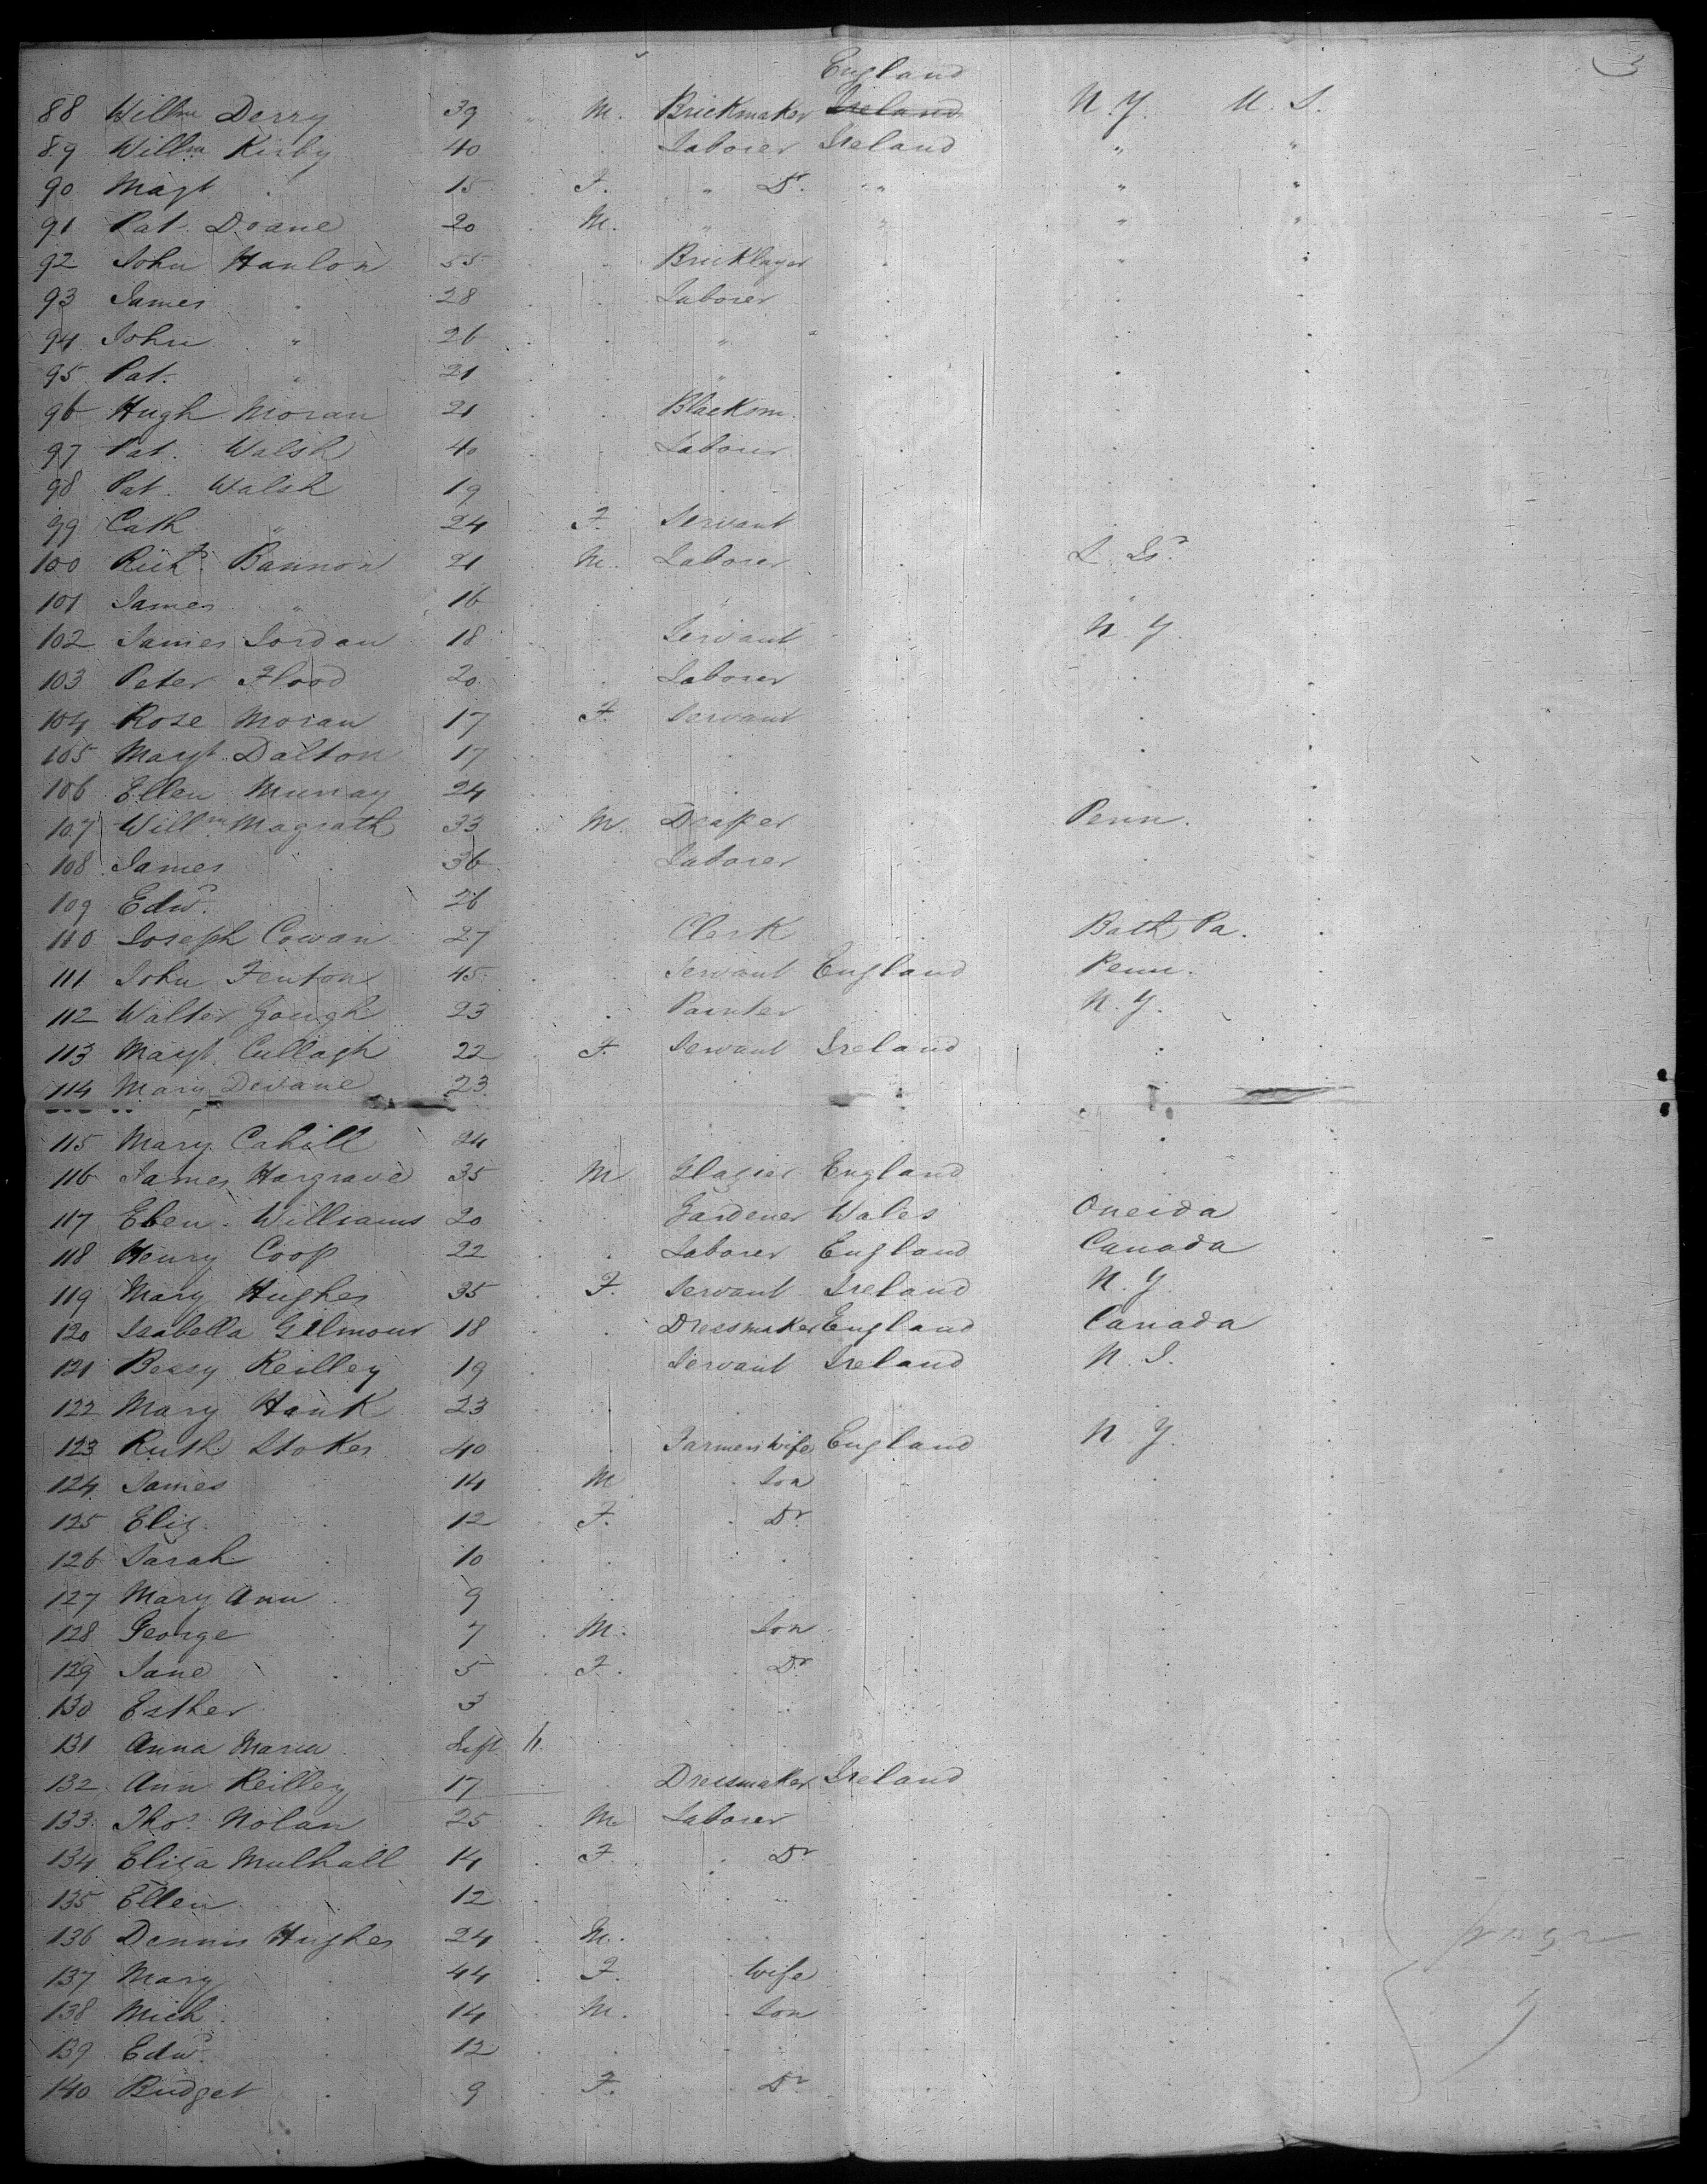 3
England
88 Willm Derry 39 " M. Brickmaker Ireland N.Y. U.S.
89 Willm Kirby 40 Laborer Ireland " "
90 Magt " 15 F. " Dr. " " "
91 Pat. Doane 20 M. " " " "
92 John Hanlon 55 Bricklayer " " "
93 James " 28 Laborer
94 John " 26 "
95 Pat. " 21 "
96 Hugh Moran 21 Blacksm.
97 Pat. Walsh 40 Laborer
98 Pat. Walsh 19
99 Cath " 24 F. Servant
100 Richd Bannon 21 M. Laborer L. Isd
101 James " 16 " "
102 James Jordan 18 Servant N.Y.
103 Peter Flood 20 Laborer
104 Rose Moran 17 F. Servant
105 Magt Dalton 17
106 Ellen Murray 24
107 Willm Magrath 33 M. Draper Penn.
108 James 36 Laborer
109 Edwd. 26
110 Joseph Cowan 27 Clerk Bath Pa.
111 John Fenton 45 Servant England Penn.
112 Walter Gough 23 Painter N.Y.
113 Magt. Cullagh 22 F. Servant Ireland
114 Mary Devane 23
115 Mary Cahill 24
116 James Hargrave 35 M Glazier England
117 Eben. Williams 20 Gardener Wales Oneida
118 Henry Coop 22 Laborer England Canada
119 Mary Hughes 35 F. Servant Ireland N.Y.
120 Isabella Gilmour 18 Dressmaker England Canada
121 Bessy Reilley 19 Servant Ireland N.J.
122 Mary Hank 23
123 Ruth Stokes 40 Farmers wife England N.Y.
124 James 14 M Son
125 Eliz. 12 F. Dr.
126 Sarah 10
127 Mary Ann 9
128 George 7 M. Son
129 Jane 5 F. Dr
130 Esther 3
131 Anna Maria Inft
132 Ann Reilley 17 Dressmaker Ireland
133 Thos. Nolan 25 M. Laborer
134 Eliza Mulhall 14 F. Dr
135 Ellen 12
136 Dennis Hughes 24 M.
137 Mary 44 F. Wife
138 Mich 14 M. Son
139 Edwd. 12
140 Bridget 9 F. Dr